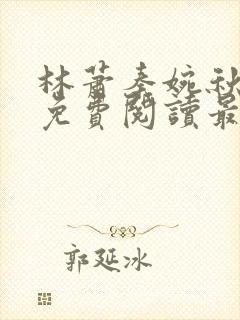 林萧秦婉秋
免費閱讀最
郭延冰